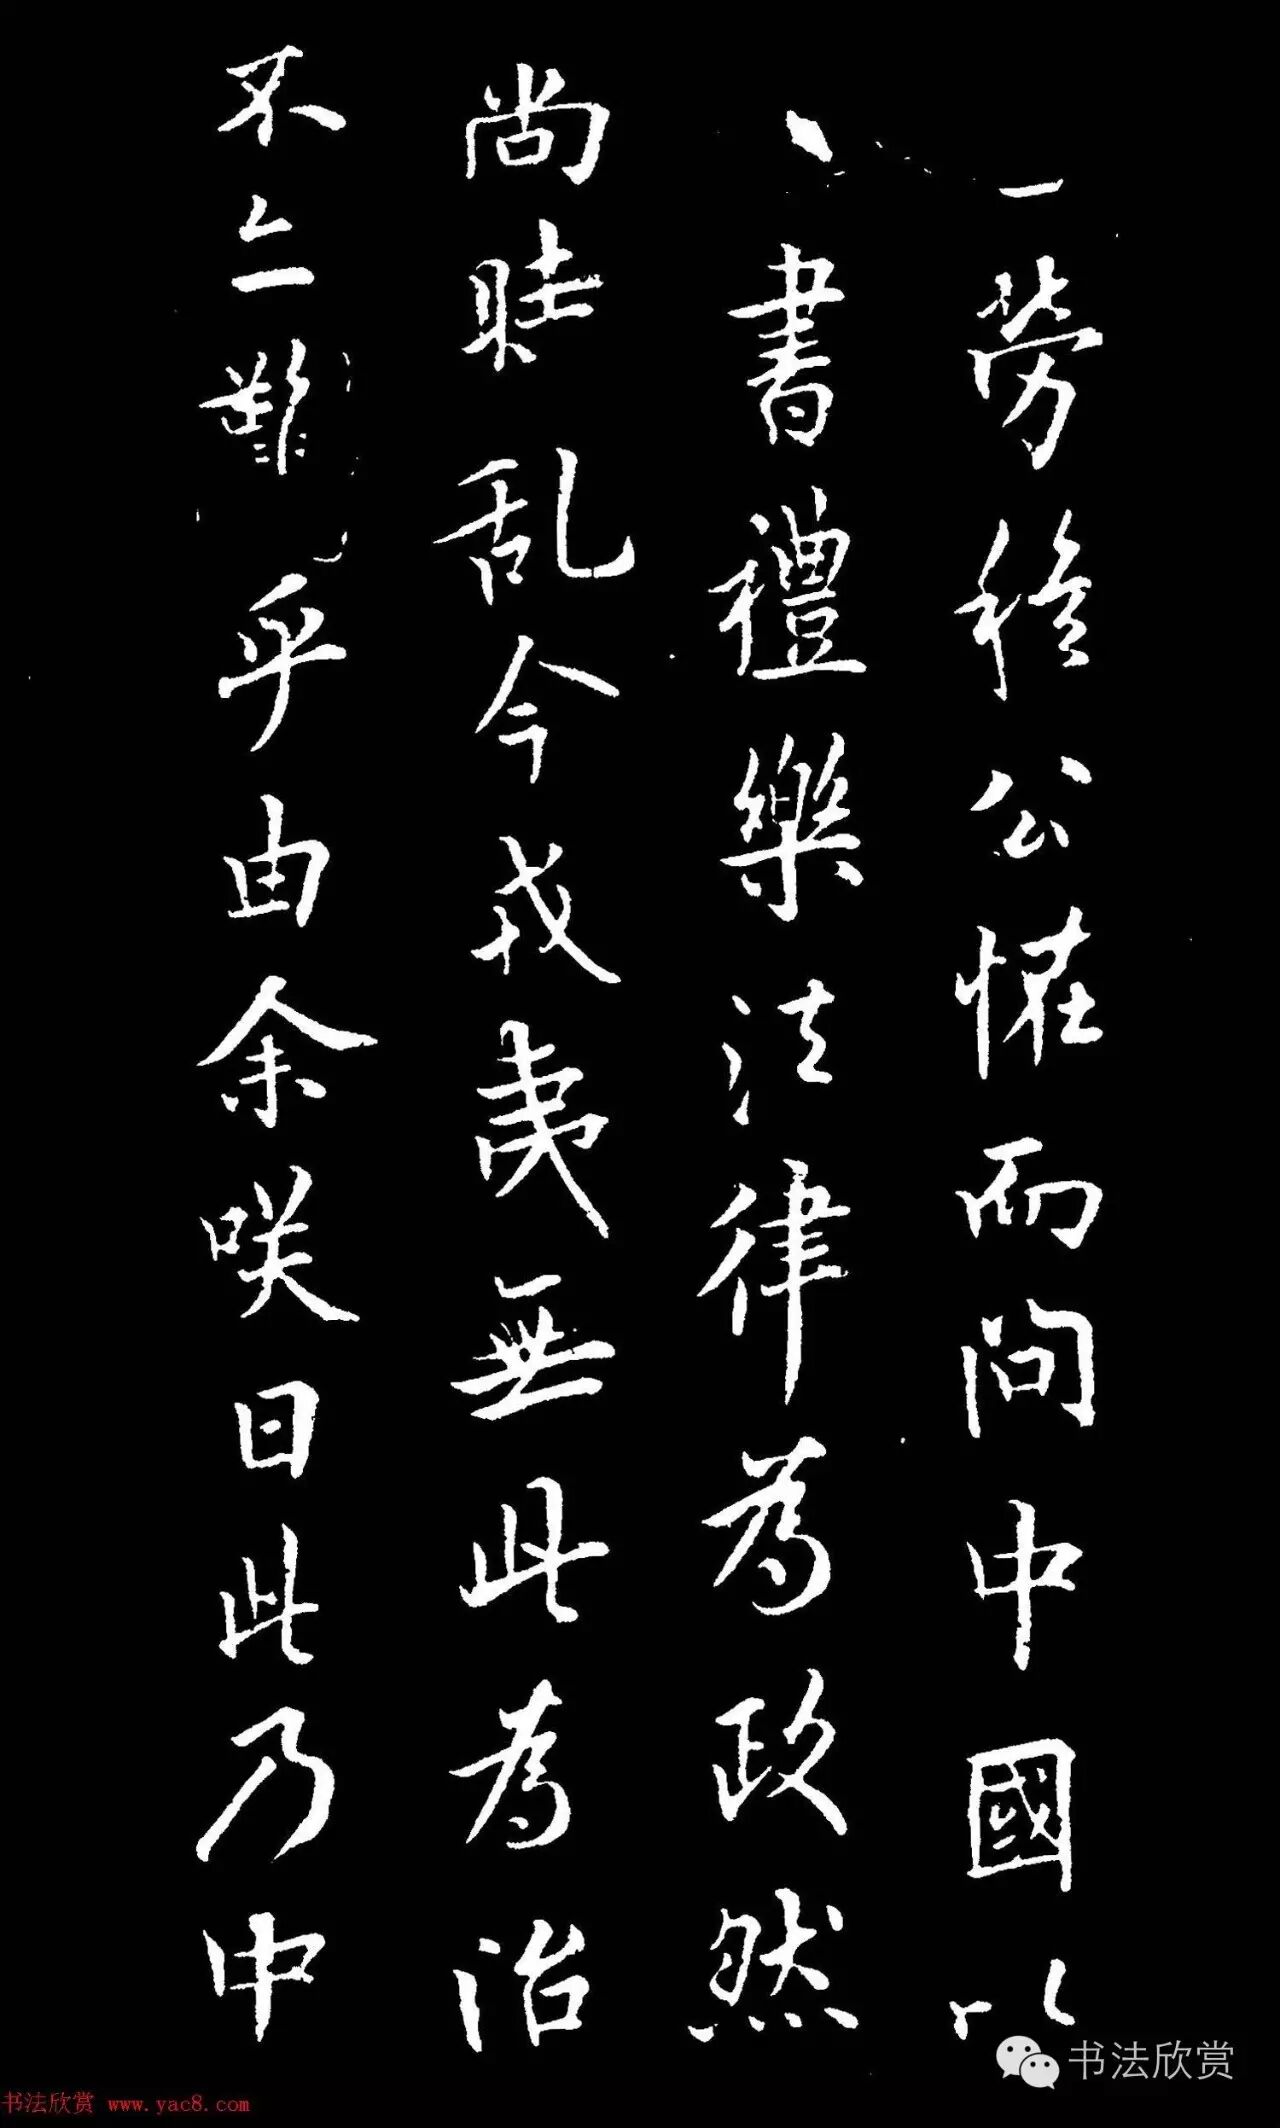 勞穆公恠而問中國以
書禮樂法律為政然
尚時乱今戎夷無此為治
不亦難乎由余咲曰此乃中
书法欣赏
书法欣赏 www.yac8.com